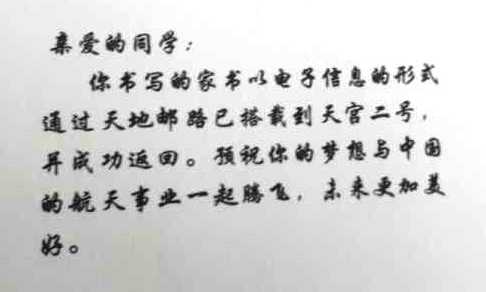 亲爱的同学：
你书写的家书以电子信息的形式
通过天地邮路已搭载到天宫二号，
并成功返回。预祝你的梦想与中国
的航天事业一起腾飞，未来更加美
好。